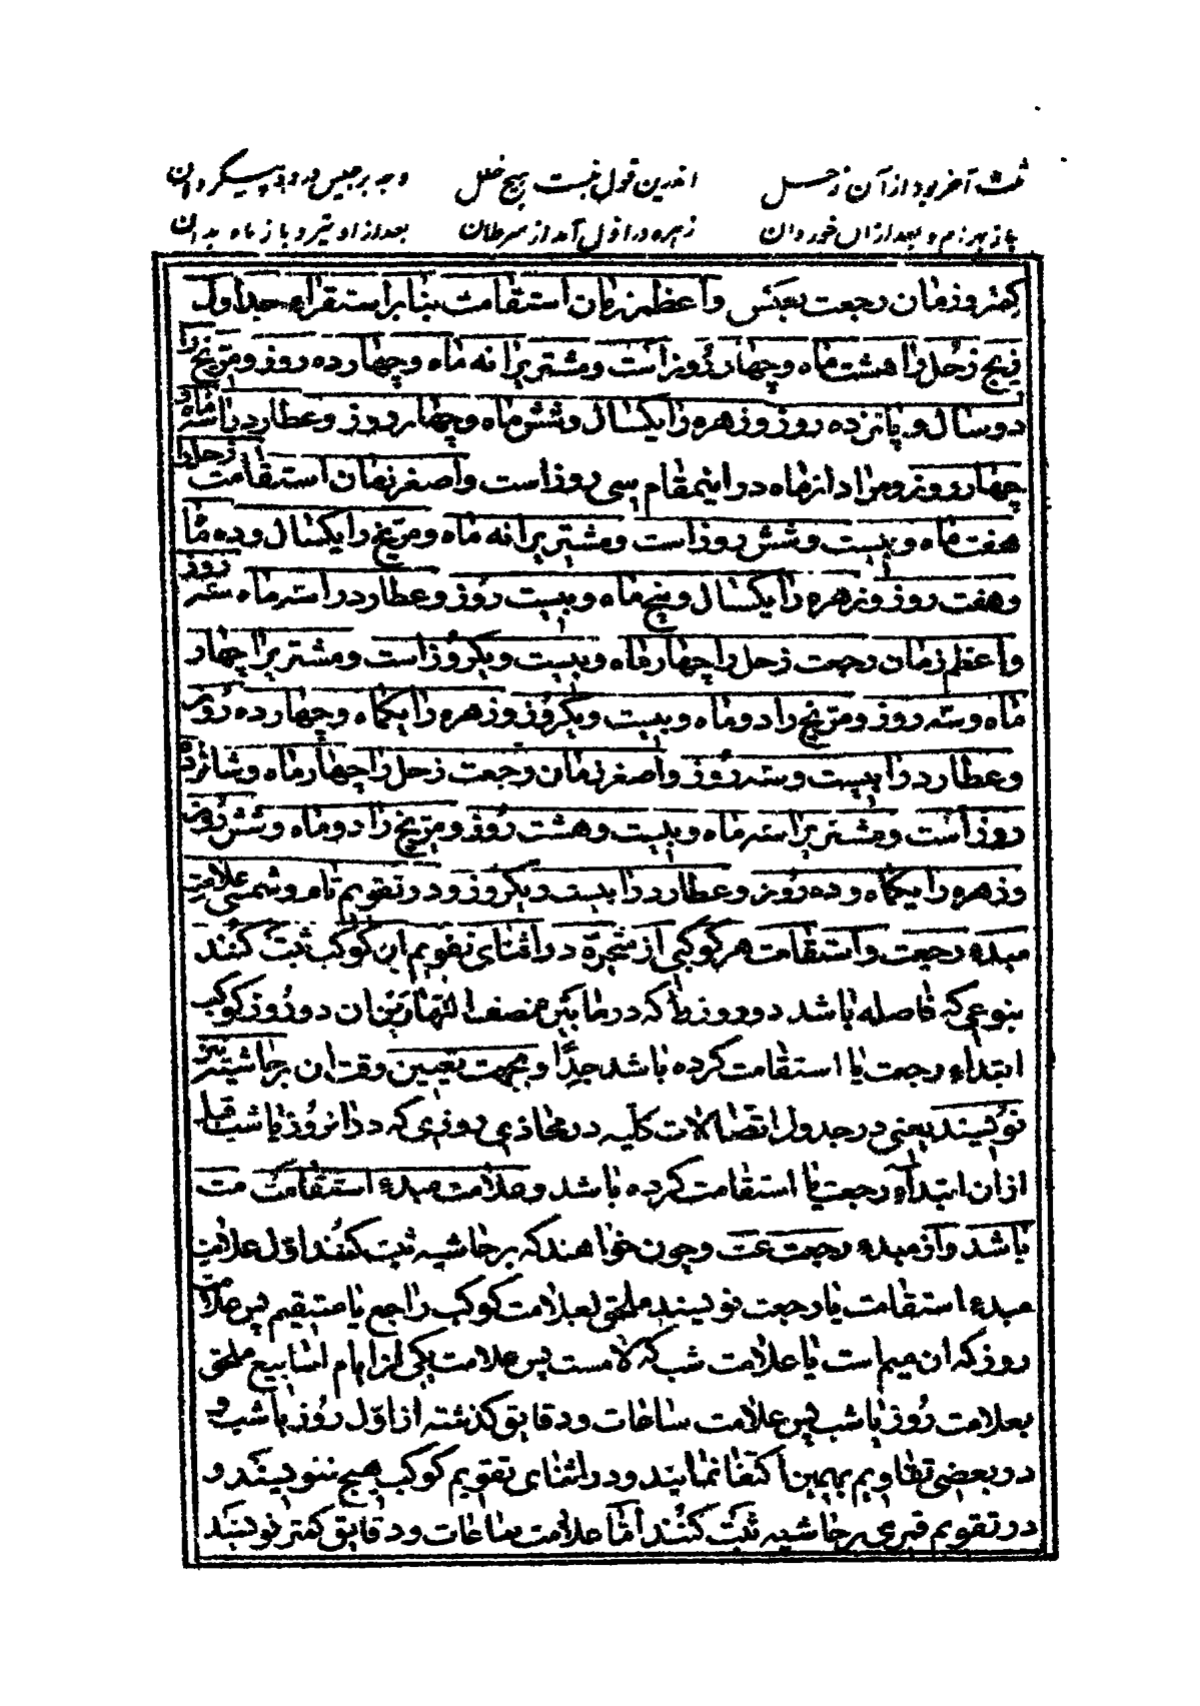 ثلث آخر بود از آن زحل اندرین قول نیست هیچ خلل وجه برجیس در دوپیکر دان
باز بهرام و بعد ازان خور دان زهره در اول آمد از سرطان بعد از او تیر و باز ماه بدان
کمتر و زمان رجعت بعکس و اعظم زمان استقامت بنا بر استقراء جداول
زیج زحل را هشت ماه و چهار روز است و مشتریرا نه ماه و چهارده روز و مریخ را
دو سال و پانزده روز و زهره را یکسال و شش ماه و چهار روز و عطارد را سه ماه و
چهار روز و مراد از ماه در اینمقام سی روز است و اصغر زمان استقامت زحل را
هفت ماه و بیست و شش روز است و مشتریرا نه ماه و مریخ را یکسال و ده ماه
و هفت روز و زهره را یکسال و پنج ماه و بیست روز و عطارد را سه ماه سه روز
و اعظم زمان رجعت زحل را چهار ماه و بیست و یکروز است و مشتریرا چهار
ماه و سه روز و مریخ را دو ماه و بیست و یکروز و زهره را یکماه و چهارده روز
و عطارد را بیست و سه روز و اصغر زمان رجعت زحل را چهار ماه و شانزده
روز است و مشتریرا سه ماه و بیست و هشت روز و مریخ را دو ماه و شش روز
و زهره را یکماه و ده روز و عطارد را بیست و یکروز و در تقویم تام و شمسی علامت
مبدء رجعت و استقامت هر کوکبی از متحیره در اثنای تقویم ان کوکب ثبت کنند
بنوعی که فاصله باشد دو روز را که در مابین منصف النهارین ان دو روز کوکب
ابتداء رجعت یا استقامت کرده باشد جدا و بجهت تعیین وقت ان بر حاشیه نیز
نویسند یعنی در جدول اتصالات کلیه در محاذی روزی که در انروز یا شب قبل
از ان ابتداء رجعت یا استقامت کرده باشد و علامت مبدء استقامت مت
باشد و از مبدء رجعت عت و چون خواهند که بر حاشیه ثبت کنند اول علامت
مبدء استقامت یا رجعت نویسند ملحق بعلامت کوکب راجع یا مستقیم پس علامت
روز که ان میم است یا علامت شب که لامست پس علامت یکی از ایام اسابیع ملحق
بعلامت روز یا شب پس علامت ساعات و دقایق گذشته از اول روز یا شب و
در بعضی تقاویم بهمین اکتفا نمایند و در اثنای تقویم کوکب هیچ ننویسند و
در تقویم قمری بر حاشیه ثبت کنند اما علامت ساعات و دقایق کمتر نویسند